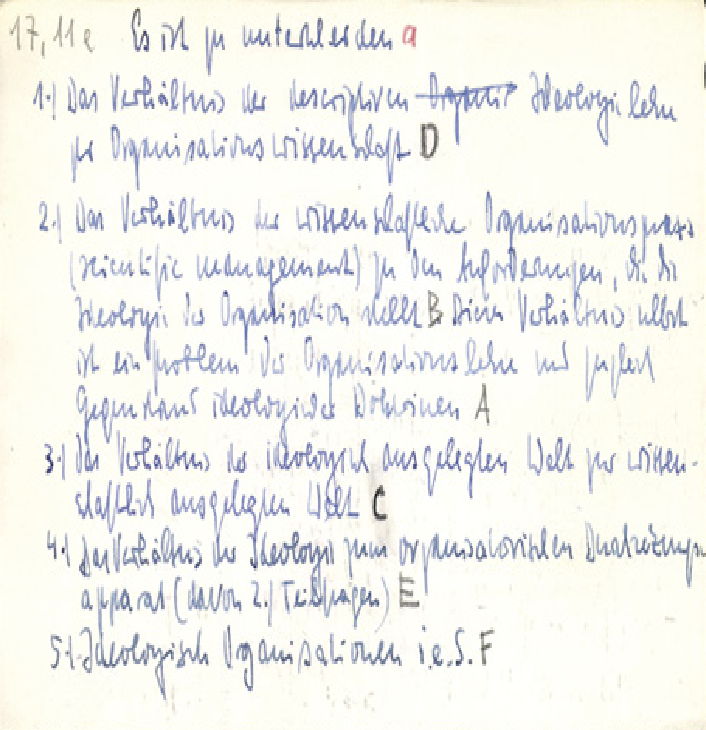 17,11e Es ist zu unterscheiden a
1.) Das Verhältnis der descriptiven Ideologielehre
zur Organisationswissenschaft D
2.) Das Verhältnis der wissenschaftliche Organisationspraxis
(scientific management) zu den Anforderungen, die die
Ideologie der Organisation stellt B Dieses Verhältnis selbst
ist ein Problem der Organisationslehre und zugleich
Gegenstand ideologischer Doktrinen A
3.) Das Verhältnis der ideologisch ausgelegten Welt zur wissen-
schaftlich ausgelegten Welt C
4.) Das Verhältnis der Ideologie zum organisatorischen Durchsetzungs
apparat (davon 2.) Teilfragen) E
5.) Ideologische Organisationen i.e.S. F